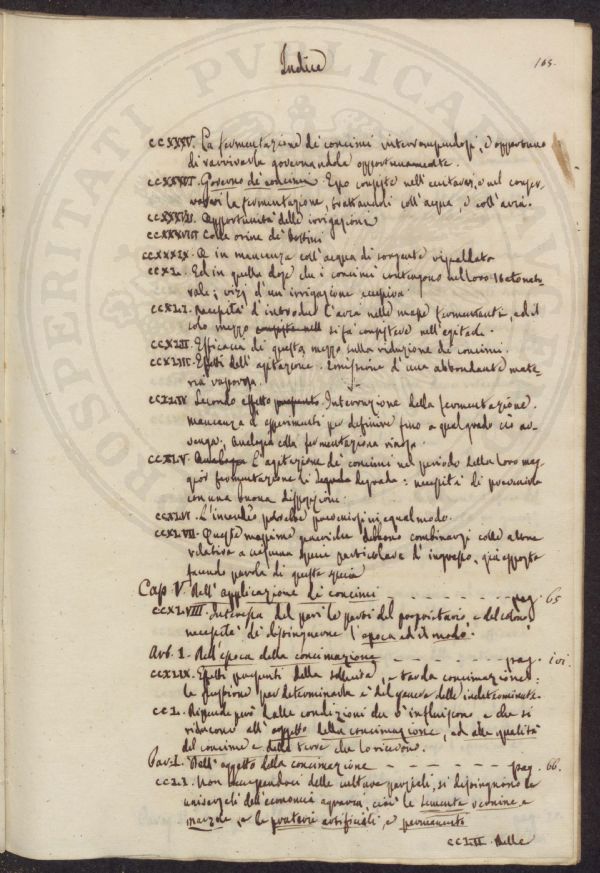 Indice
165.
CCXXXV. La fermentazione de' concimi interrompendosi, è opportuno
di ravvivarla governandola opportunamente.
CCXXXVI. Governo de' concimi. Esso consiste nell' eccitarsi, e nel conser-
varsi la fermentazione, trattandoli coll' acqua, e coll' aria.
CCXXXVII. Opportunità delle irrigazioni
CCXXXVIII Colle orine de' bestini
CCXXXIX. O in mancanza coll' acqua di sorgente
CCXL. Ed in quella dose che i concimi contengono nel loro stato natu-
rale; vizj d'un irrigazione eccessiva.
CCXLI. Necessità d'introdur l'aria nelle masse fermentanti, ed il
solo mezzo si fa consistere nell' agitarle.
CCXLII. Efficacia di questo mezzo sulla riduzione de' concimi.
CCXLIII. Effetti dell' agitazione. Emissione d'una abbondante mate-
ria vaporosa.
CCXLIV Secondo effetto Interruzione della fermentazione.
mancanza d' esperimenti per definire fino a qual grado ciò av-
venga, Analogia colla fermentazione vinosa.
CCXLV. L' agitazione de' concimi nel periodo della loro mag-
gior fermentazione li degrada: necessità di
con una buona disposizione.
CCXLVI. L' incendio potrebbe in egual modo.
CCXLVII. Queste massime debbono combinarsi colle altre
relative a ciascuna specie particolare di ingrasso, già esposte
facendo parola di questa specie
Cap. V. Dell' applicazione de' concimi - - - - pag. 65
CCXLVIII. Interessa del pari le parti del proprietario, e del colono,
necessità di distinguerne l'epoca ed il modo.
Art. 1. Dell' epoca della concimazione - - - - pag. ivi.
CCXLIX. Effetti presenti della sollecita, e tarda concimazione:
la questione per determinarla è del genere delle indeterminate.
CCL. Dipende però dalle condizioni che v' influiscono e che si
riducono all' oggetto della concimazione, ed alle qualità
del concime e della terra che lo riceve.
Par. 1. Dell' oggetto della concimazione - - - - pag. 66.
CCLI. Non occupandoci delle culture parziali, si distinguono le
universali dell' economia agraria, cioè la sementa vernina, e
marzola, e le praterie artificiali, e permanenti
CCLII. Nelle
PROSPERITATI PUBLICAE AUGENDAE